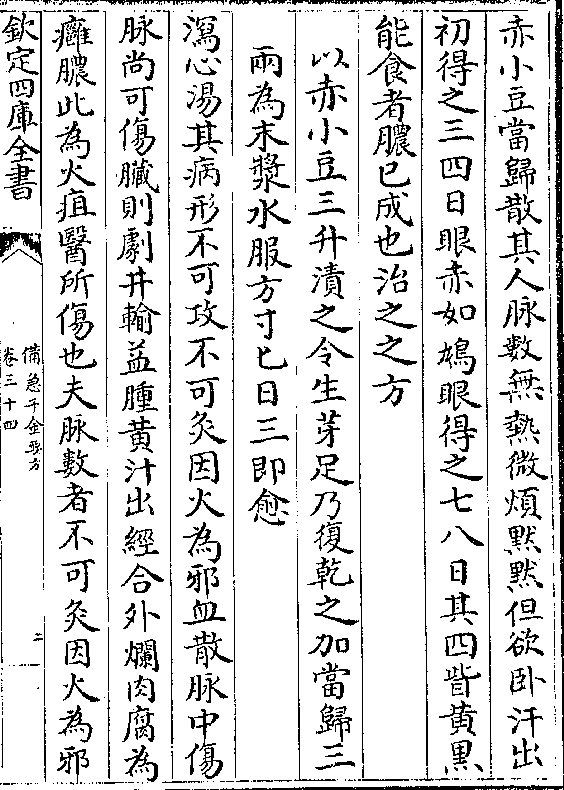 赤小豆當歸散其人脉數無熱微煩黙黙但欲卧汗出
初得之三四日眼赤如鳩眼得之七八日其四眥黄黒
能食者膿已成也治之之方
以赤小豆三升漬之令生芽足乃復乾之加當歸三
兩為末漿水服方寸匕日三即愈
瀉心湯其病形不可攻不可灸因火為邪血散脉中傷
脉尚可傷臟則劇井輸益腫黄汁出經合外爛肉腐為
癰膿此為火疽醫所傷也夫脉數者不可灸因火為邪
欽定四庫全書
備急千金要方
卷三十四
二